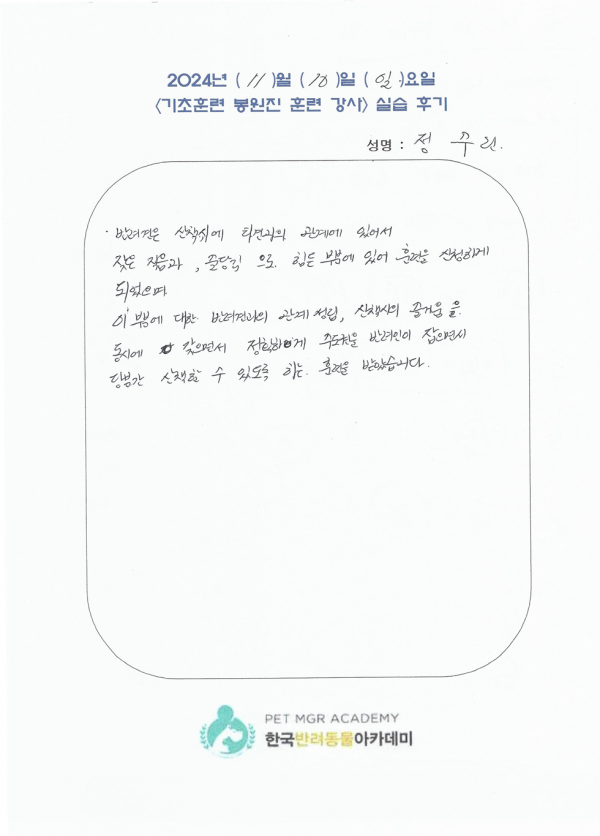 2024년 ( 11 )월 ( 10 )일 ( 일 )요일
<기초훈련 봉원진 훈련 강사> 실습 후기
성명 : 정 수 린.
· 반려견은 산책시에 타견과의 관계에 있어서
잦은 짖음과, 줄당김 으로 힘든 부분에 있어 훈련을 신청하게
되었으며
이 부분에 대한 반려견과의 관계 정립, 산책시의 즐거움 을
동시에 갖으면서 정확하게 주도권을 반려인이 잡으면서
당분간 산책할 수 있도록 하는 훈련을 받았습니다.
PET MGR ACADEMY
한국반려동물아카데미